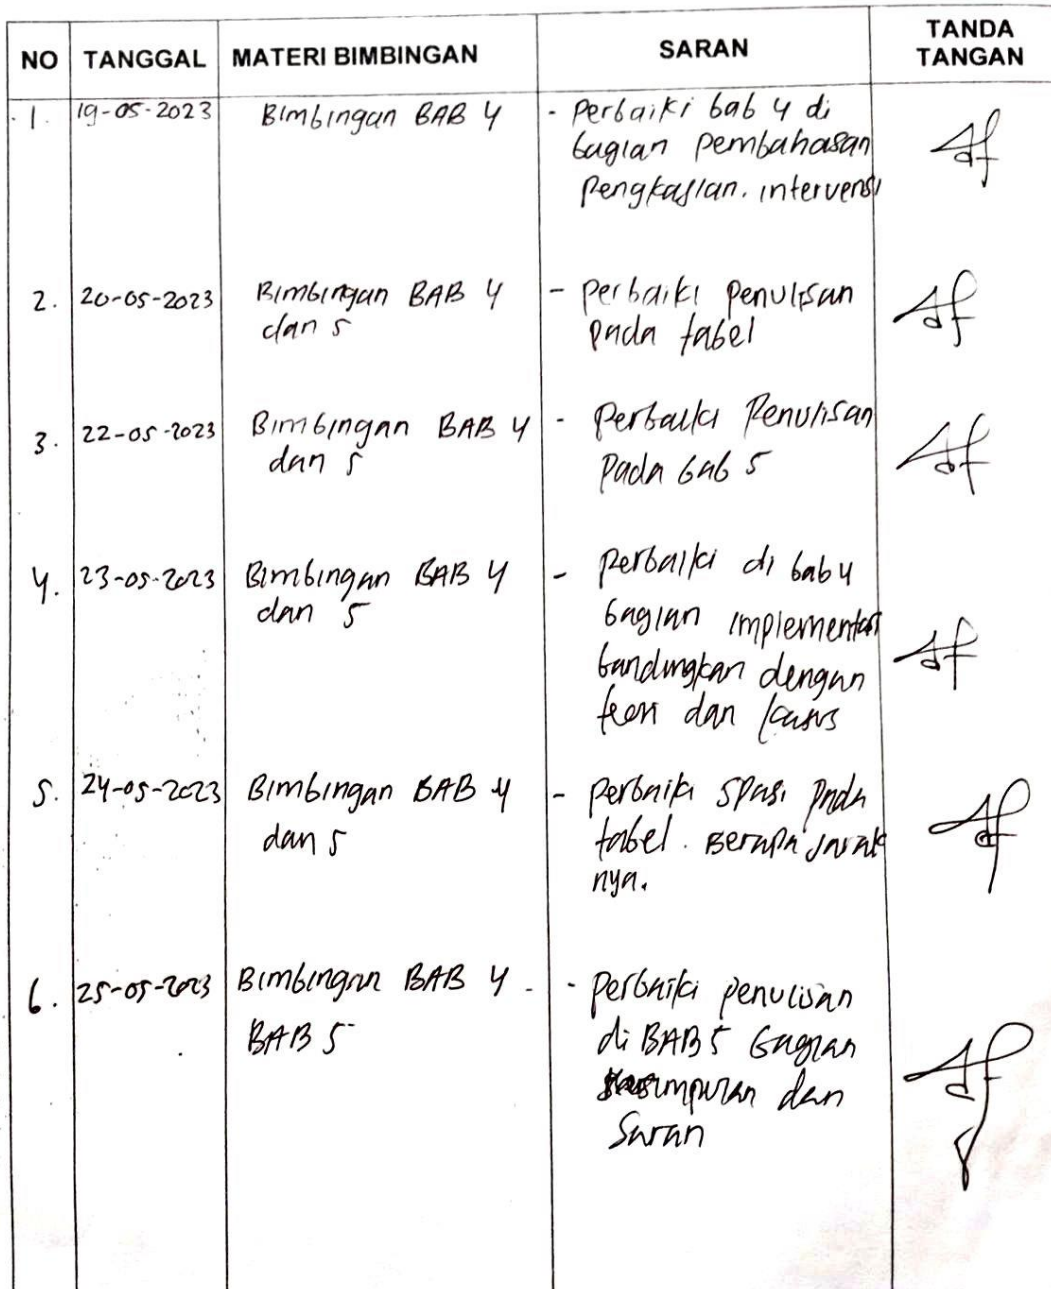 NO TANGGAL MATERI BIMBINGAN SARAN TANDA TANGAN
1. 19-05-2023 Bimbingan BAB 4 - Perbaiki bab 4 di
bagian Pembahasan
Pengkajian. intervensi
2. 20-05-2023 Bimbingan BAB 4 - perbaiki penulisan
dan 5 pada tabel
3. 22-05-2023 Bimbingan BAB 4 - Perbaiki Penulisan
dan 5 Pada bab 5
4. 23-05-2023 Bimbingan BAB 4 - perbaiki di bab 4
dan 5 bagian implementasi
bandingkan dengan
teori dan kasus
5. 24-05-2023 Bimbingan BAB 4 - perbaiki spasi pada
dan 5 tabel. Berapa jarak
nya.
6. 25-05-2023 Bimbingan BAB 4 - - perbaiki penulisan
BAB 5 di BAB 5 bagian
kesimpulan dan
Saran